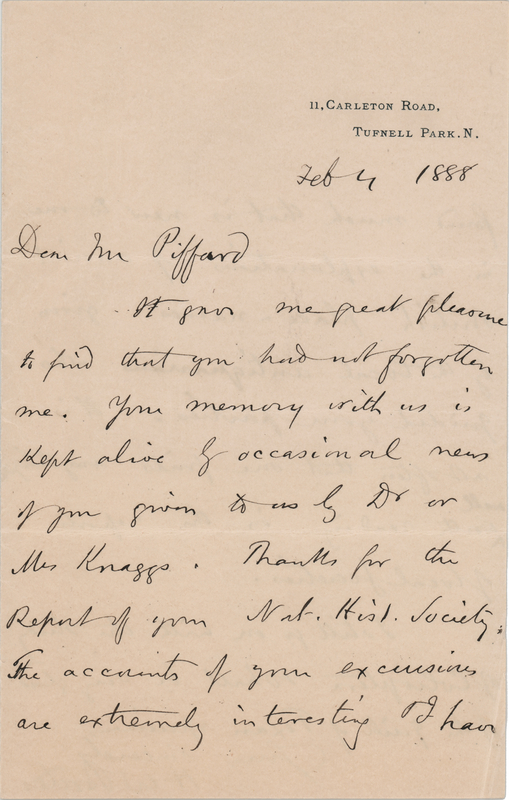 11, CARLETON ROAD,
TUFNELL PARK. N.
Feb 4 1888
Dear Mr Piffard
It gives me great pleasure
to find that you had not forgotten
me. Your memory with us is
kept alive by occasional news
of you given to us by Dr or
Mrs Knaggs. Thanks for the
Report of your Nat. Hist. Society.
The accounts of your excursions
are extremely interesting & I have